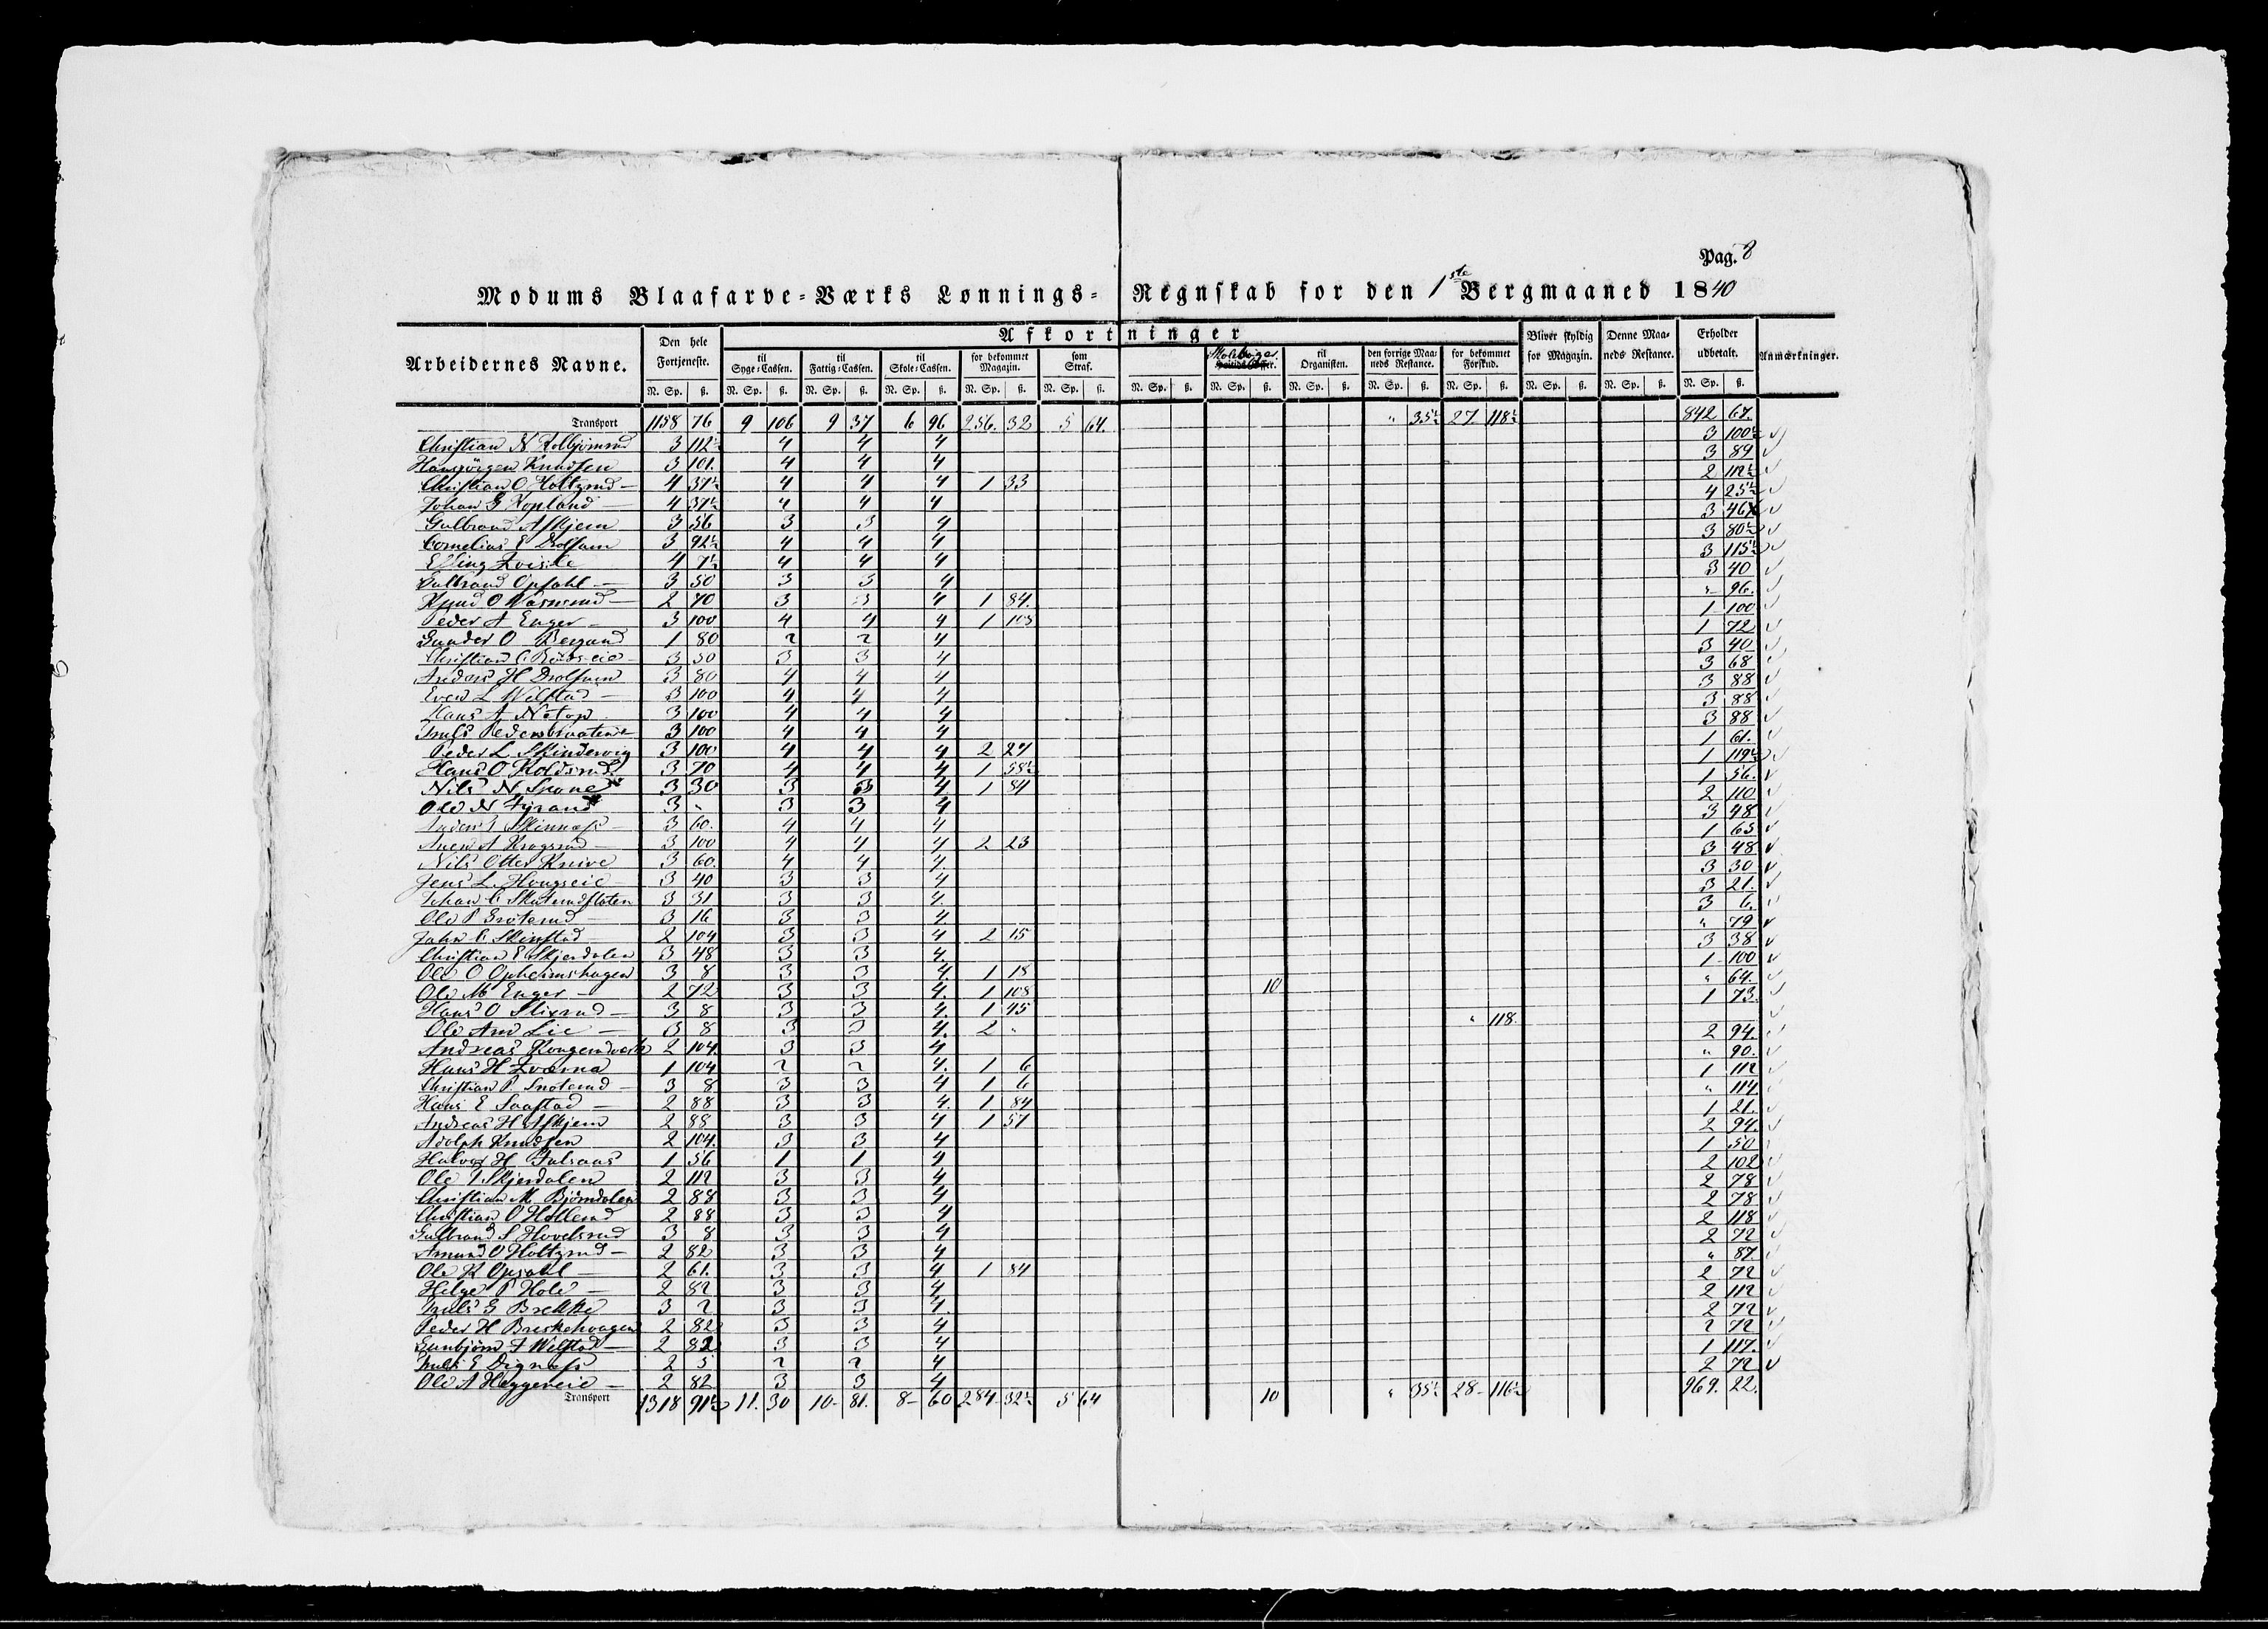 Pag. 8
Modums Blaafarve-Værks Lønnings-Regnskab for den 1ste Bergmaaned 1840
Arbeidernes Navne. | Den hele Fortjeneste. | Afkortninger | Bliver skyldig for Magazin. | Denne Maaneds Restance. | Erholder udbetalt. | Anmærkninger.
til Syge-Cassen. | til Fattig-Cassen. | til Skole-Cassen. | for bekommet Magazin. | som Straf. | til Organisten. | den forrige Maaneds Restance. | for bekommet Forskud.
N. Sp. ß. | N. Sp. ß. | N. Sp. ß. | N. Sp. ß. | N. Sp. ß. | N. Sp. ß. | N. Sp. ß. | N. Sp. ß. | N. Sp. ß. | N. Sp. ß. | N. Sp. ß. | N. Sp. ß. | N. Sp. ß. | N. Sp. ß.
Transport 1158 76 9 106 9 37 6 96 256. 32 5 64. " 35½ 27 118½ 842 67.
Christian N 3 112½ 4 4 4 3 100½
Hansjörgen Knudsen 3 101. 4 4 4 3 89
Christian O Holtzrud 4 37½ 4 4 4 1 33 2 112½
Johan G Kopland 4 37½ 4 4 4 4 25½
Gulbrand Askjem 3 56 3 3 4 3 46
Cornelius E Drolsum 3 92½ 4 4 4 3 80½
Elling 4 7½ 4 4 4 3 115½
Gulbrand Opsahl 3 50 3 3 4 3 40
Knud O 2 70 3 3 4 1 84. " 96.
Peder A Enger 3 100 4 4 4 1 108 1 100
Gunder O 1 80 2 2 4 1 72
Christian C 3 50 3 3 4 3 40
Anders H Drolsum 3 80 4 4 4 3 68
Even L Wilstad 3 100 4 4 4 3 88
Hans A 3 100 4 4 4 3 88
Truls Pedersbraaten 3 100 4 4 4 3 88
Peder L Skindervig 3 100 4 4 4 2 27 1 61.
Hans O Koldsrud 3 70 4 4 4 1 58½ 1 119½
Nils N Snone 3 30 3 3 4 1 84 1 56.
Ole N Fyrand 3 - 3 3 4 2 110
Anders Skinnæss 3 60. 4 4 4 3 48
Aren A Krogsrud 3 100 4 4 4 2 23 1 65
Nils Otter Kneve 3 60. 4 4 4. 3 48
Jens L. Hougseie 3 40 3 3 4. 3 30
Johan C Skuterudfloten 3 31 3 3 4. 3 21.
Ole P 3 16 3 3 4. 3 6.
John C Skinstad 2 104 3 3 4 2 15 " 79
Christian E Skjerdalen 3 48 3 3 4. 3 38
Ole O Opheimshagen 3 8 3 3 4. 1 18 1 100
Ole M Enger 2 72 3 3 4. 1 108 10 " 64.
Hans O Slixrud 3 8 3 3 4. 1 45 1 73.
Ole And Lie 3 8 3 3 4. 2 " " 118.
Andreas 2 104. 3 3 4 2 94.
Hans H 1 104 2 2 4. 1 6 " 90.
Christian P. 3 8 3 3 4 1 6 1 112
Hans E Saastad 2 88 3 3 4. 1 84 " 114.
Andreas H Askjem 2 88 3 3 4 1 57 1 21.
Adolph Knudsen 2 104. 3 3 4 2 94.
Halvor H 1 56 1 1 4 1 50
Ole Skjerdalen 2 112 3 3 4 2 102
Christian M. Bjørndalen 2 88 3 3 4 2 78
Christian O Hollerud 2 88 3 3 4 2 78
Gulbrand S Hovelsrud 3 8 3 3 4 2 118
Amund O Holtzrud 2 82 3 3 4 2 72
Ole K Opsahl 2 61. 3 3 4 1 84 " 87.
Helge P Hole 2 82 3 3 4 2 72
Truls G Brekke 3 2 3 3 4. 2 112
Peder H Breskehougen 2 82 3 3 4 2 72
Gunbjørn F Wilstad 2 82 3 3 4 2 72
Truls E Digness 2 5 2 2 4 1 117.
Ole A Heggeneie 2 82 3 3 4 2 72
Transport 1318 91½ 11. 30 10- 81. 8- 60 284- 32½ 5 64 10 " 35½ 28- 116½ 969. 22.